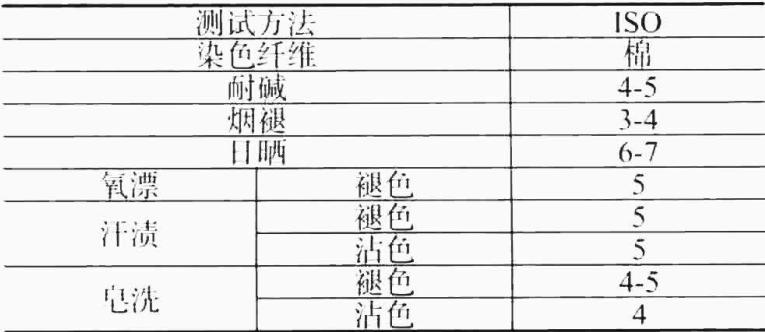 测试方法 ISO
染色纤维 棉
耐碱 4-5
烟褪 3-4
日晒 6-7
氧漂 褪色 5
汗渍 褪色 5
沾色 5
皂洗 褪色 4-5
沾色 4